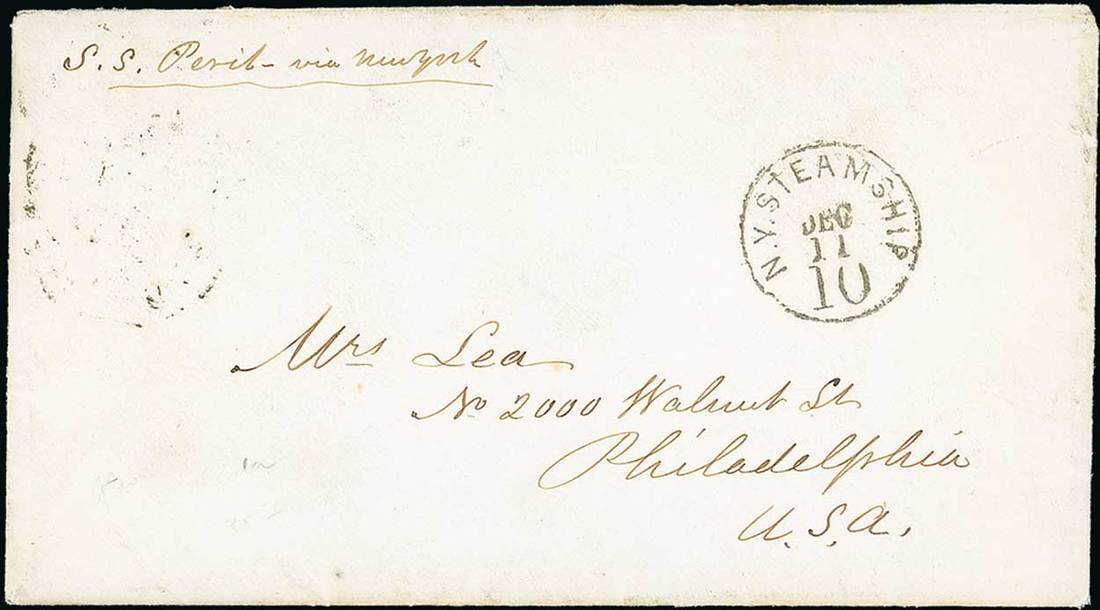 S. S. Perit - via Newyork
N.Y. STEAMSHIP
DEC
11
10
Mrs Lea
No 2000 Walnut St
Philadelphia
U.S.A.